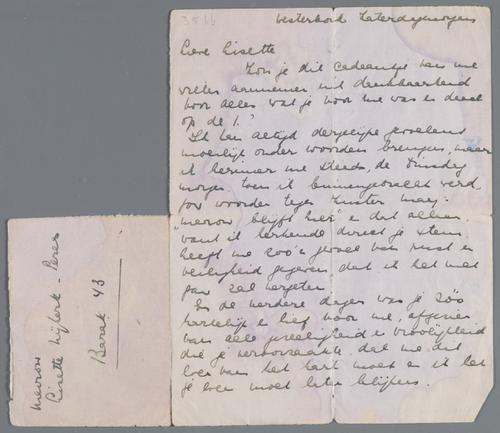 3566
Westerbork Zaterdagmorgen
Lieve Lisette
Zou je dit cadeautje van me
willen aannemen uit dankbaarheid
voor alles wat je voor me was en deed
op de 1.?
Ik kan altijd dergelijke gevoelens
moeilijk onder woorden brengen, maar
ik herinner me steeds, de Dinsdag
morgen toen ik binnengebracht werd,
jou woorden tegen zuster
"mevrouw blijft hier" en dat alleen
want ik herkende direct je stem
heeft me zoo'n gevoel van rust en
veiligheid gegeven dat ik het niet
gauw zal vergeten
En de verdere dagen was je zóó
hartelijk en lief voor me, afgezien
van alle gezelligheid en vroolijkheid
die je veroorzaakte dat me dit
van het hart moet en ik het
je moet laten blijken.
Mevrouw
Lisette - Peres
Barak 43